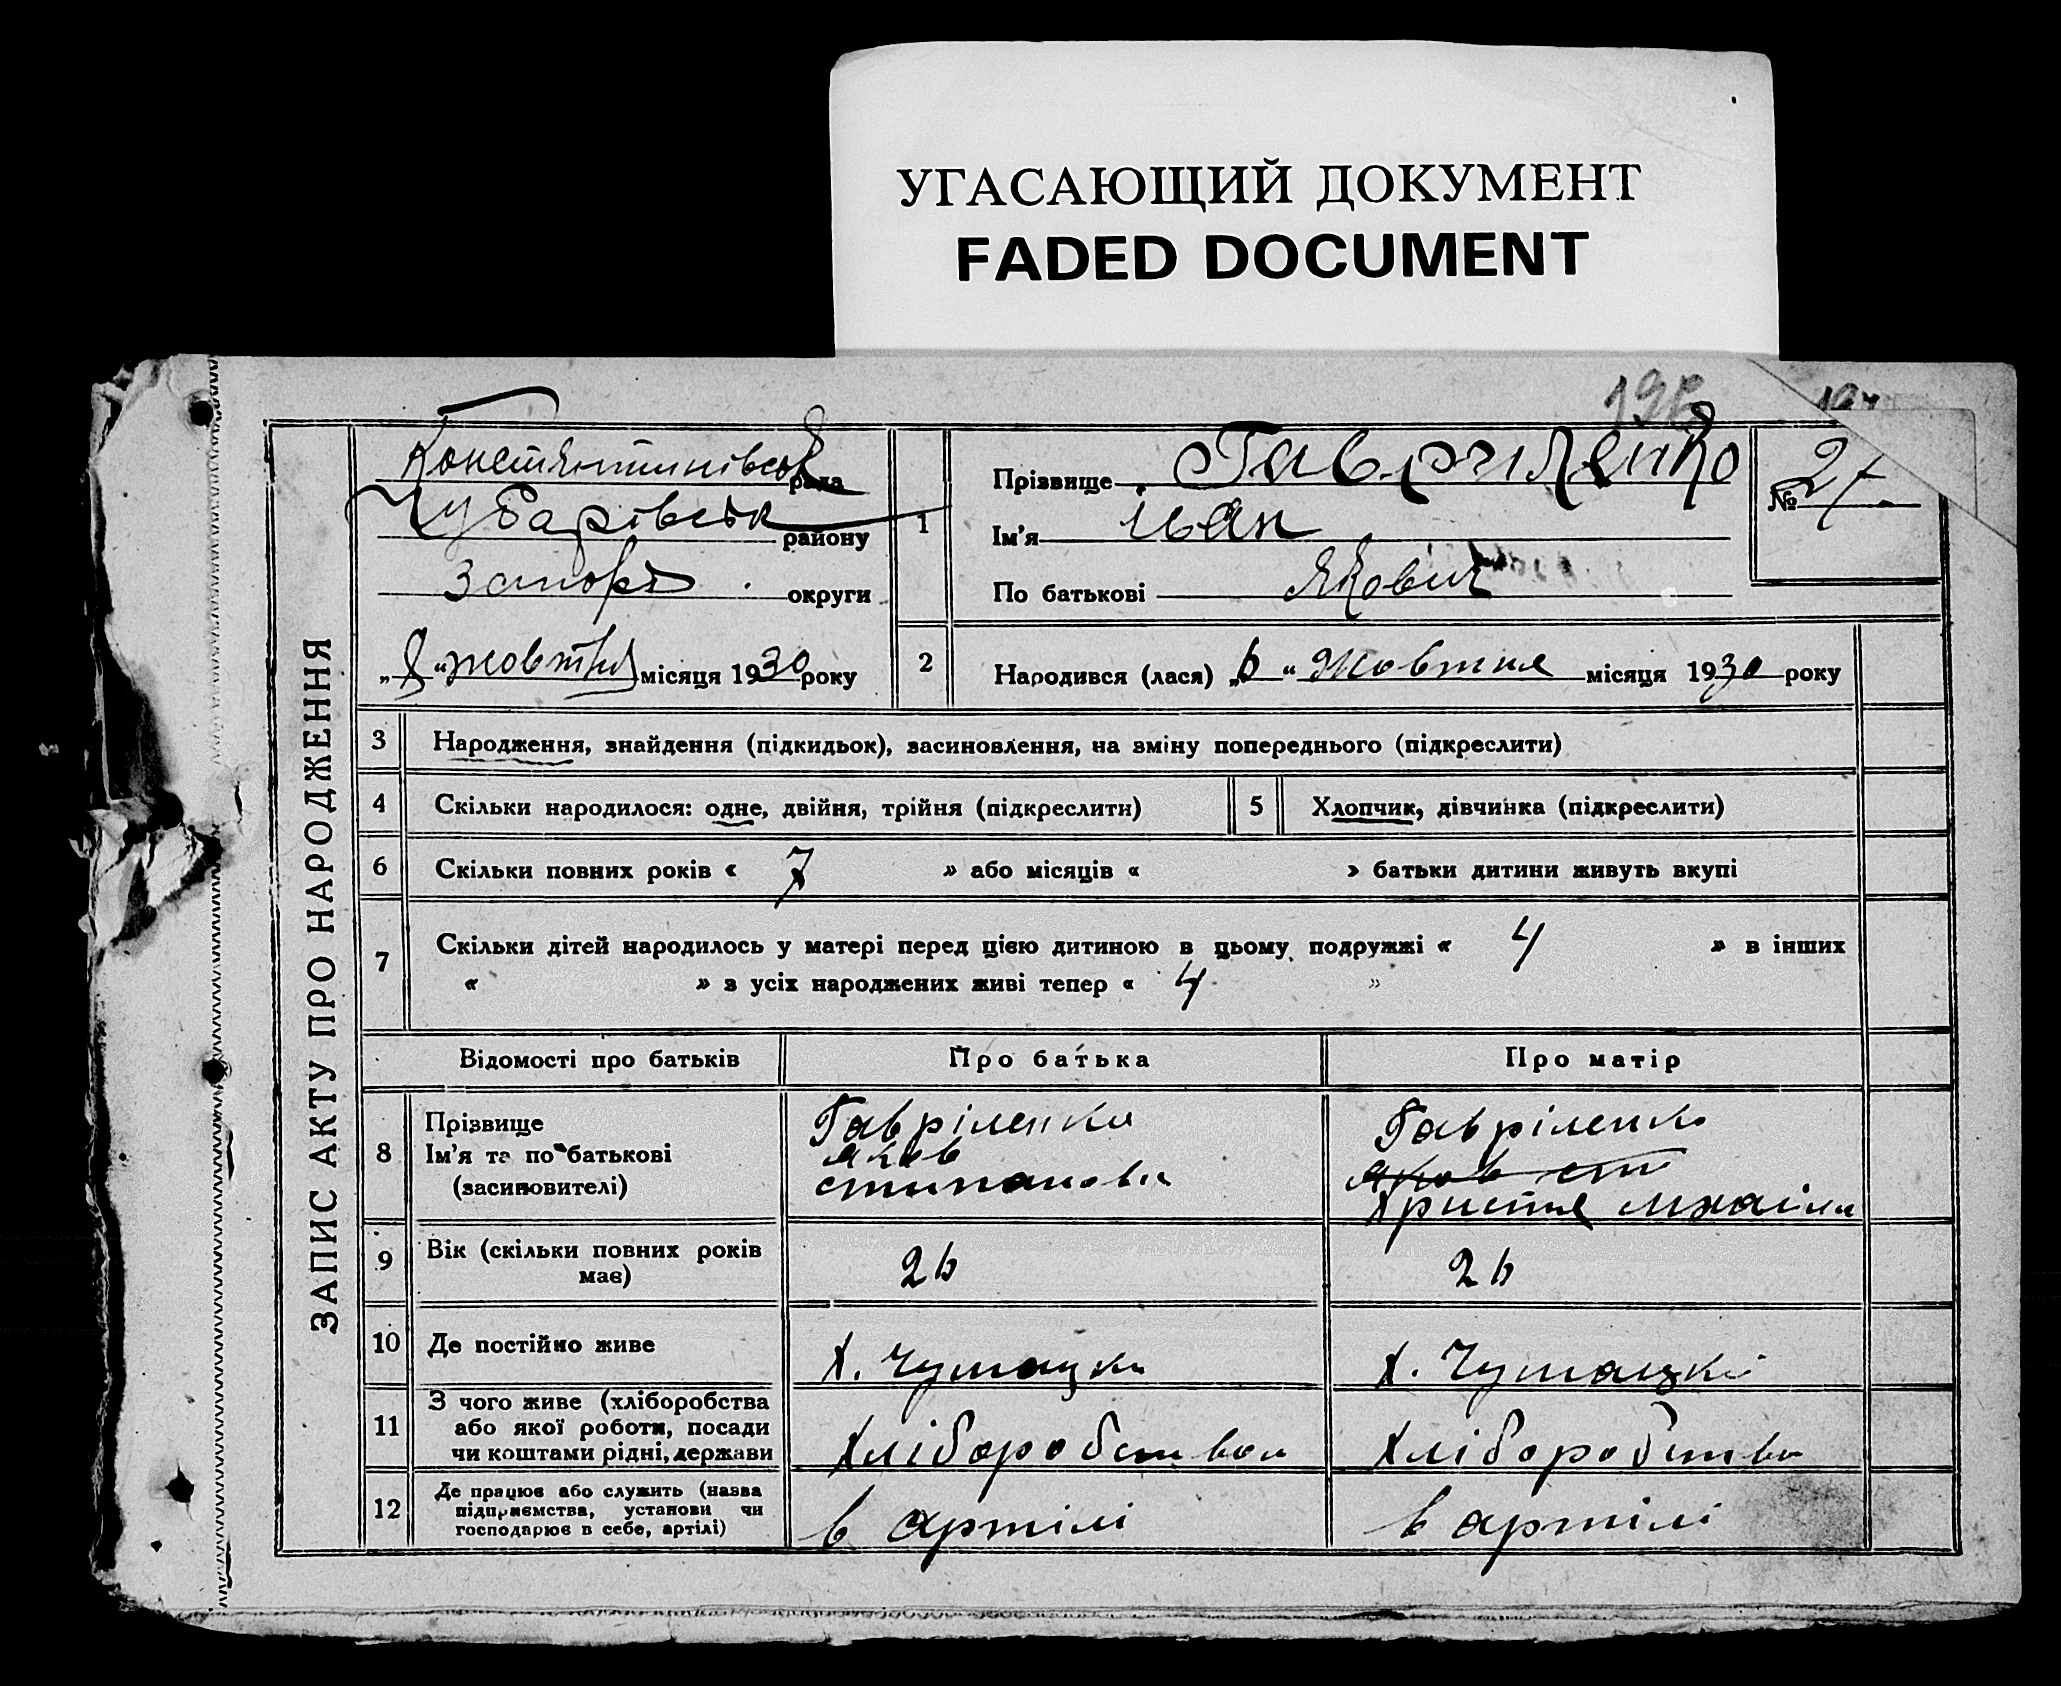 УГАСАЮЩИЙ ДОКУМЕНТ
FADED DOCUMENT
ЗАПИС АКТУ ПРО НАРОДЖЕННЯ
Констянтинівськ рада
Чубарівськ району
Запорз округи
„8“ жовтня місяця 1930 року
1
Прізвище Гавриленко
Ім'я Іван
По батькові Якович
№ 27
2
Народився (лася) „6“ Жовтня місяця 1930 року
3 Народження, знайдення (підкидьок), засиновлення, на зміну попереднього (підкреслити)
4 Скільки народилося: одне, двійня, трійня (підкреслити)
5 Хлопчик, дівчинка (підкреслити)
6 Скільки повних років « 7 » або місяців « » батьки дитини живуть вкупі
7 Скільки дітей народилось у матері перед цією дитиною в цьому подружжі « 4 » в інших
« » з усіх народжених живі тепер « 4 »
Відомості про батьків Про батька Про матір
8 Прізвище
Ім'я та по батькові
(засиновителі)
Гавріленко
Яков
Степанови
Гавріленко
Яков ст
Христя Михаіли
9 Вік (скільки повних років
має)
26
26
10 Де постійно живе
х. Чумацки
х. Чумацкі
11 З чого живе (хліборобства
або якої роботи, посади
чи коштами рідні, держави
Хліборобством
Хліборобство
12 Де працює або служить (назва
підприємства, установи чи
господарює в себе, артілі)
в артілі
в артілі